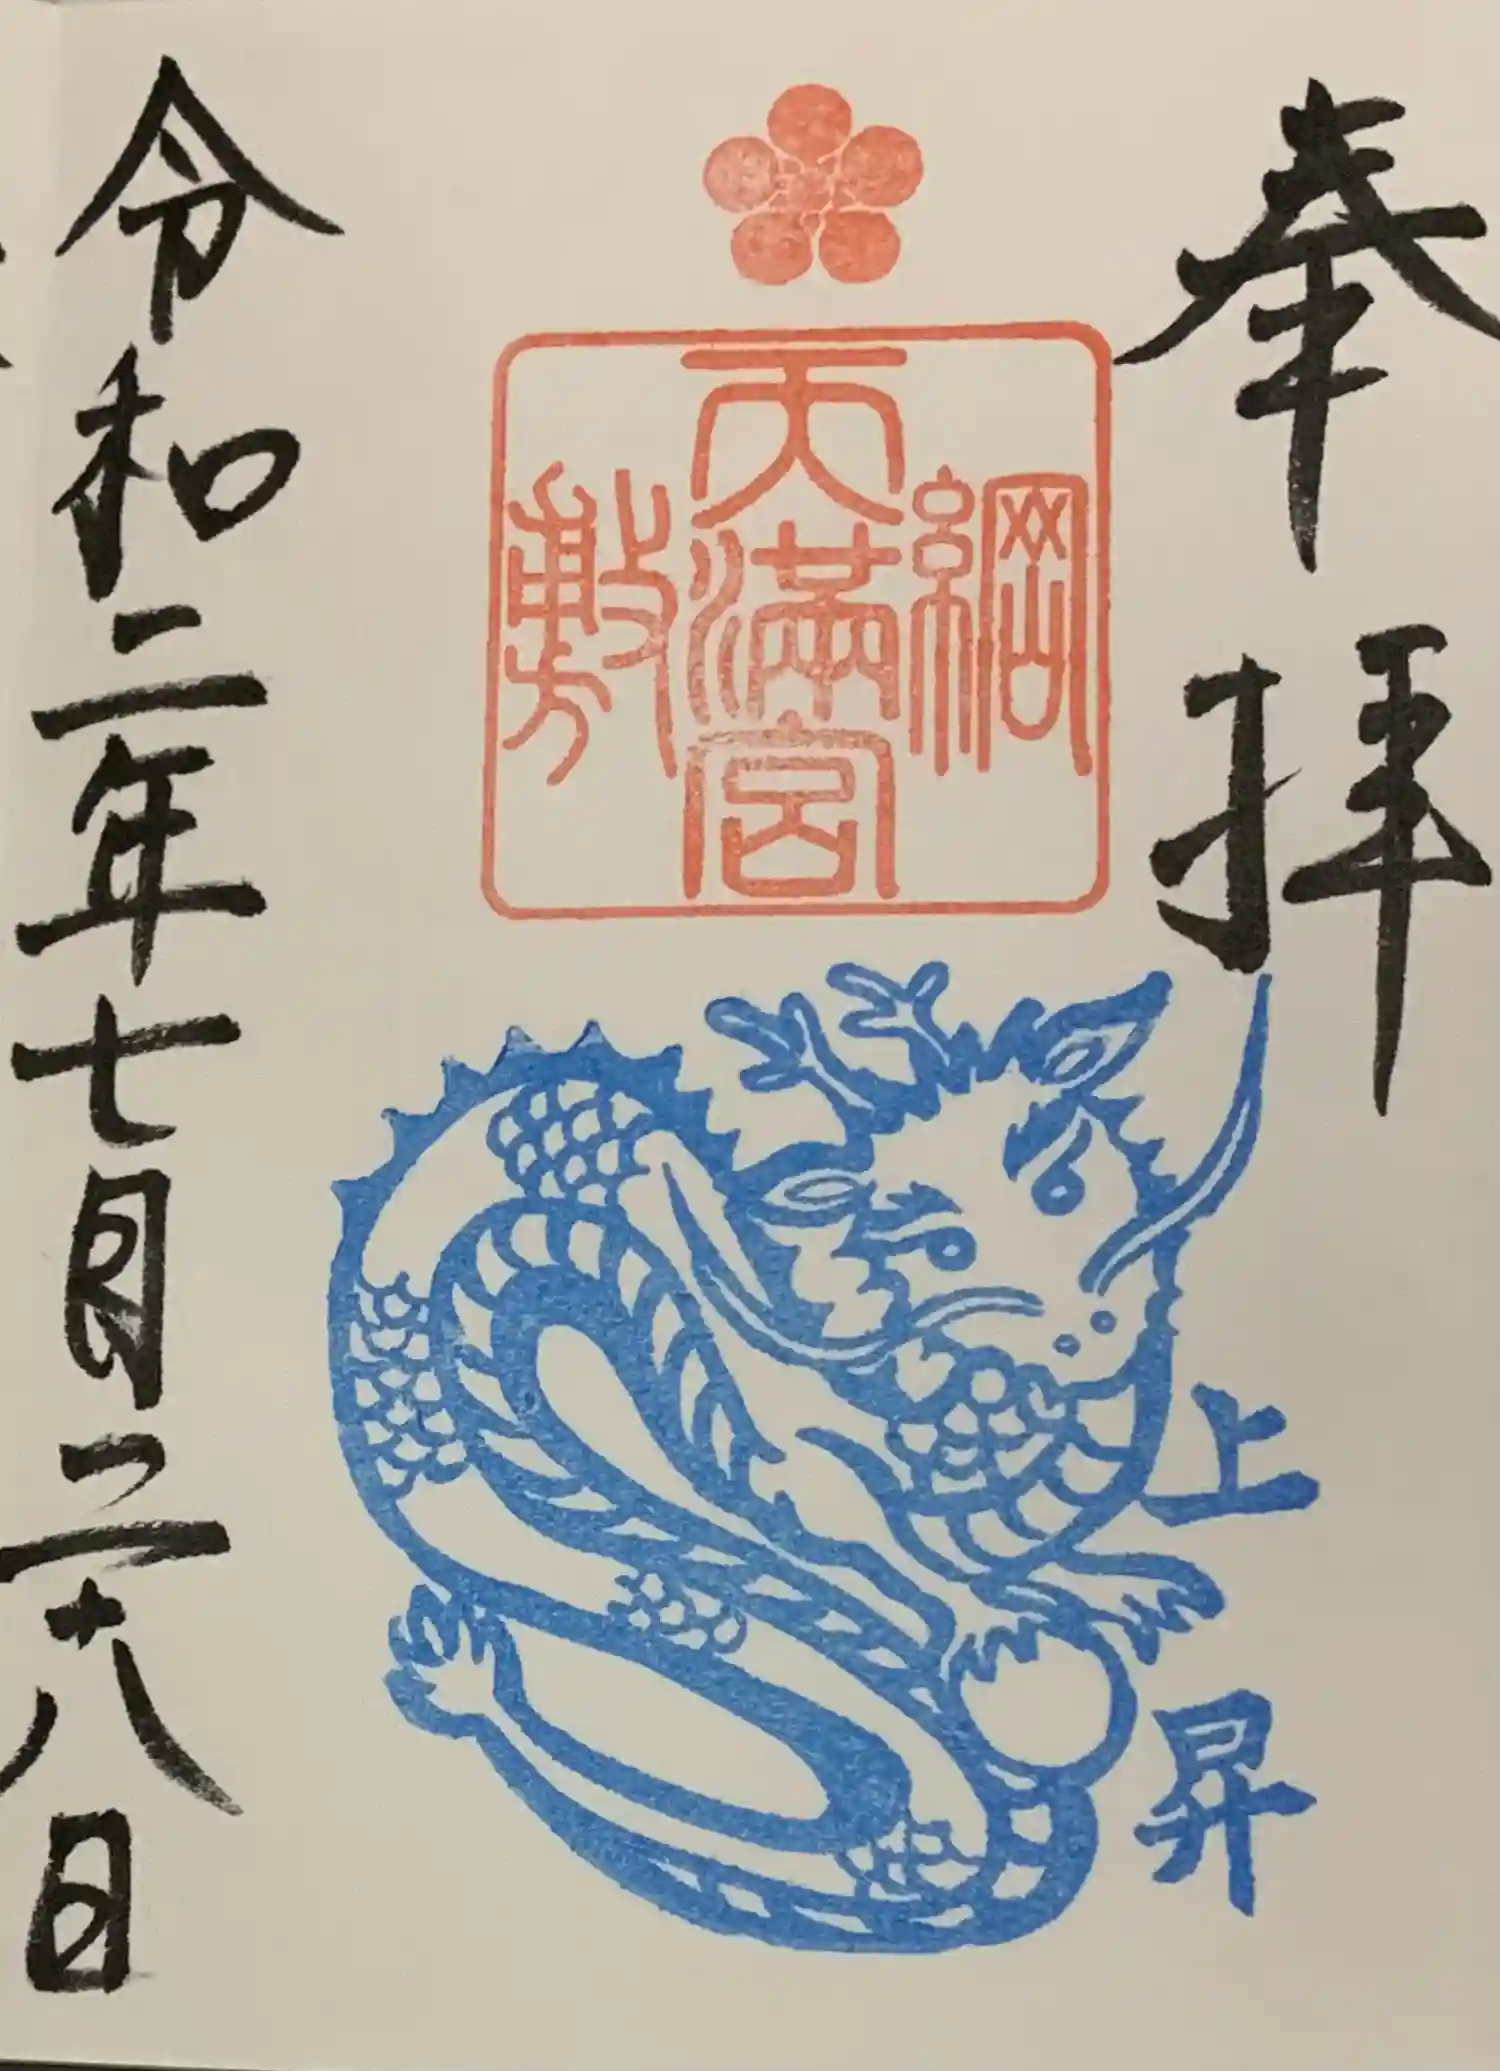 奉拝
綱
天満宮
敷
上昇
令和二年七月二十八日